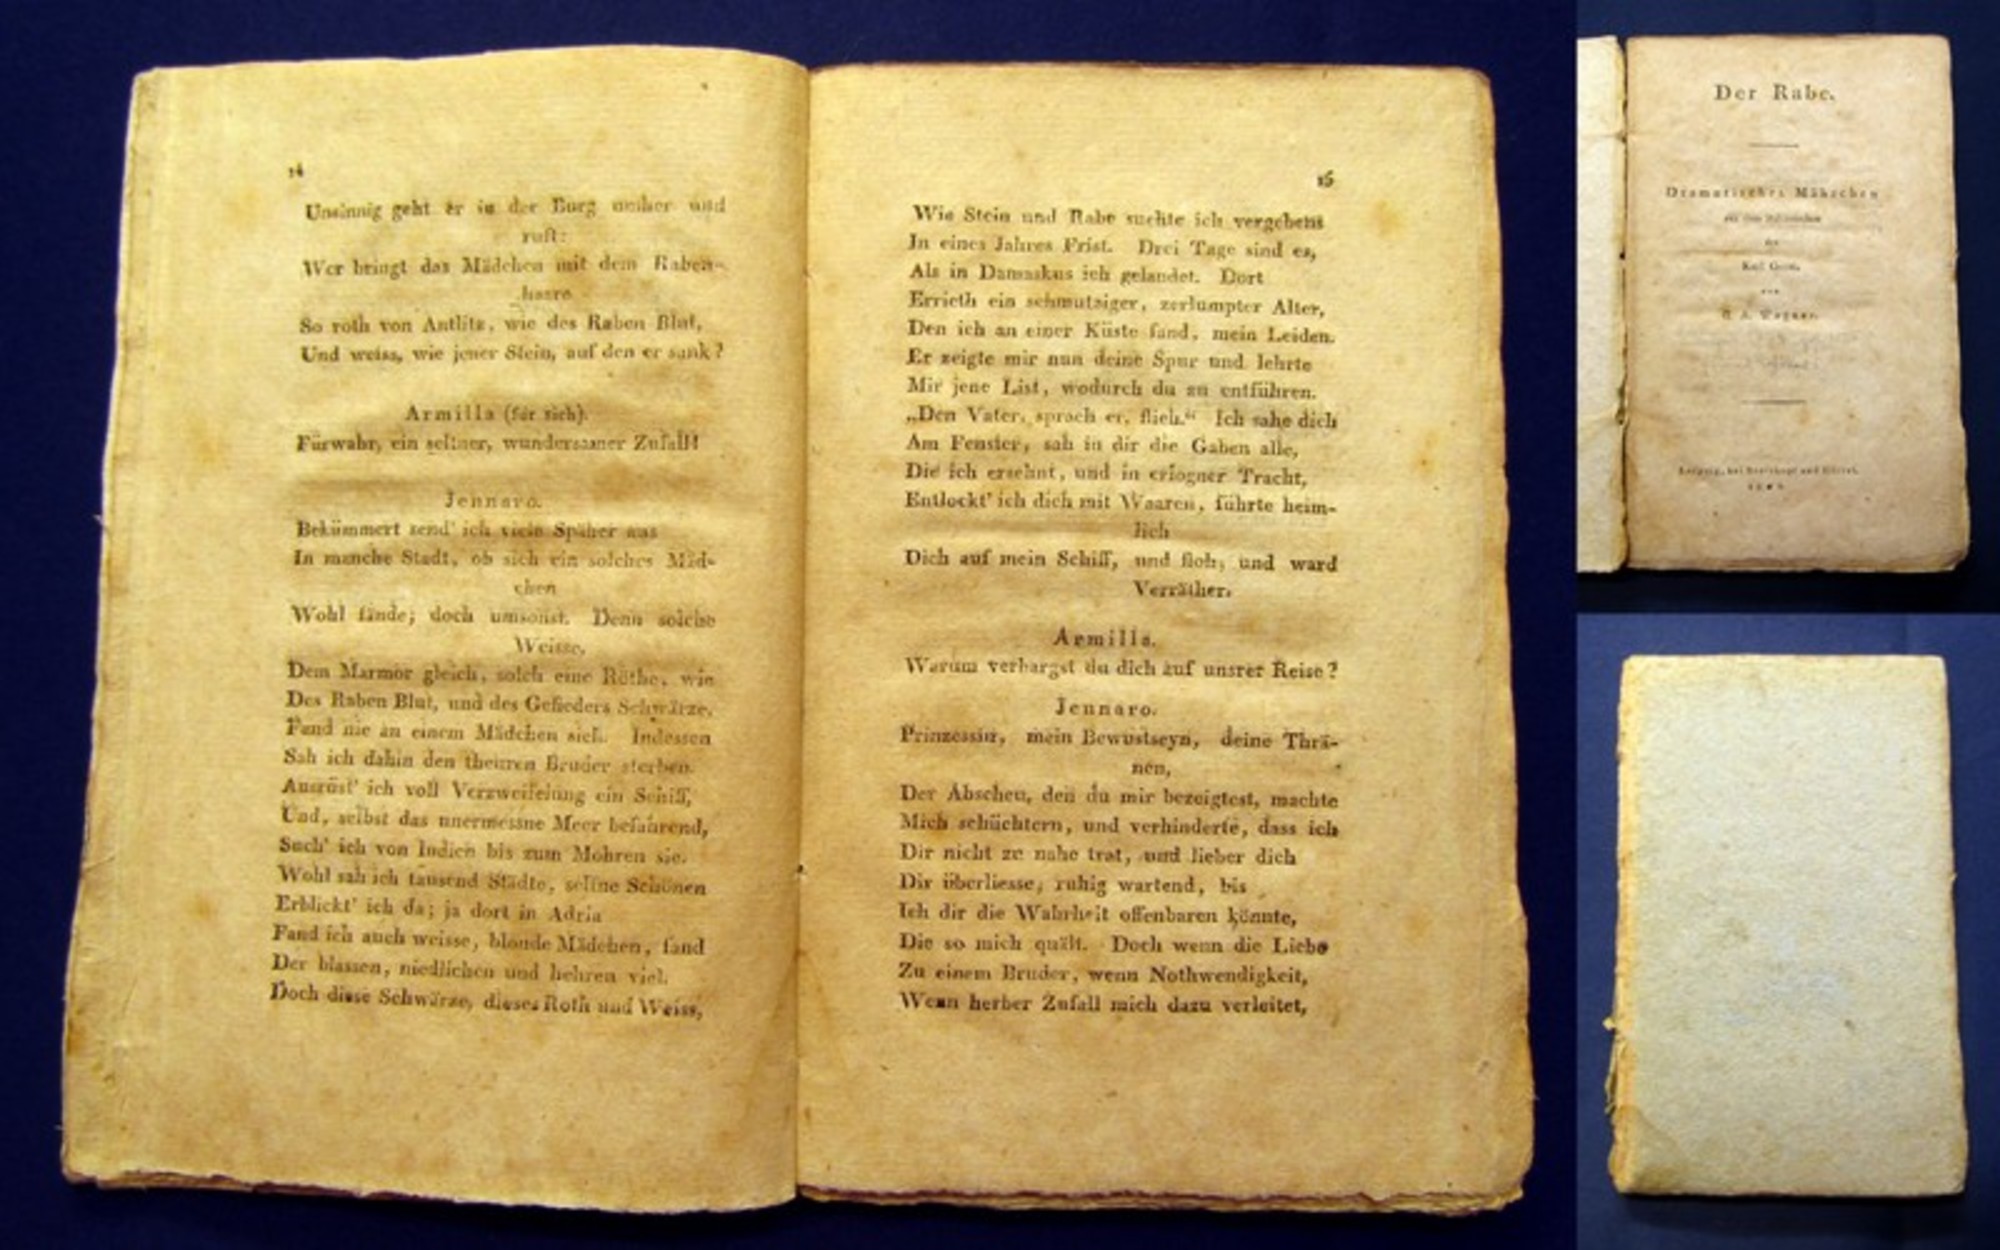 14
Unsinnig geht er in der Burg umher und
ruft:
Wer bringt das Mädchen mit dem Raben-
haare
So roth von Antlitz, wie des Raben Blut,
Und weiss, wie jener Stein, auf den er sank?
Armilla (für sich).
Fürwahr, ein seltner, wundersamer Zufall!
Jennaro.
Bekümmert send' ich viele Späher aus
In manche Stadt, ob sich ein solches Mäd-
chen
Wohl fände; doch umsonst. Denn solche
Weisse,
Dem Marmor gleich, solch eine Röthe, wie
Des Raben Blut, und des Gefieders Schwärze,
Fand nie an einem Mädchen sich. Indessen
Sah ich dahin den theuren Bruder sterben.
Ausrüst' ich voll Verzweifelung ein Schiff,
Und, selbst das unermessne Meer befahrend,
Such' ich von Indien bis zum Mohren sie.
Wohl sah ich tausend Städte, seltne Schönen
Erblickt' ich da; ja dort in Adria
Fand ich auch weisse, blonde Mädchen, fand
Der blassen, niedlichen und hehren viel.
Doch diese Schwärze, dieses Roth und Weiss,
15
Wie Stein und Rabe suchte ich vergebens
In eines Jahres Frist. Drei Tage sind es,
Als in Damaskus ich gelandet. Dort
Errieth ein schmutziger, zerlumpter Alter,
Den ich an einer Küste fand, mein Leiden.
Er zeigte mir nun deine Spur und lehrte
Mir jene List, wodurch du zu entführen.
„Den Vater, sprach er, flieh.“ Ich sahe dich
Am Fenster, sah in dir die Gaben alle,
Die ich ersehnt, und in erlogner Tracht,
Entlockt' ich dich mit Waaren, führte heim-
lich
Dich auf mein Schiff, und floh, und ward
Verräther.
Armilla.
Warum verbargst du dich auf unsrer Reise?
Jennaro.
Prinzessin, mein Bewustseyn, deine Thrä-
nen,
Der Abscheu, den du mir bezeigtest, machte
Mich schüchtern, und verhinderte, dass ich
Dir nicht zu nahe trat, und lieber dich
Dir überliesse, ruhig wartend, bis
Ich dir die Wahrheit offenbaren könnte,
Die so mich quält. Doch wenn die Liebe
Zu einem Bruder, wenn Nothwendigkeit,
Wenn herber Zufall mich dazu verleitet,
Der Rabe.
Dramatisches Mährchen
aus dem Italienischen
des
Karl Gozzi,
von
A. Wagner.
Leipzig, bei Breitkopf und Härtel.